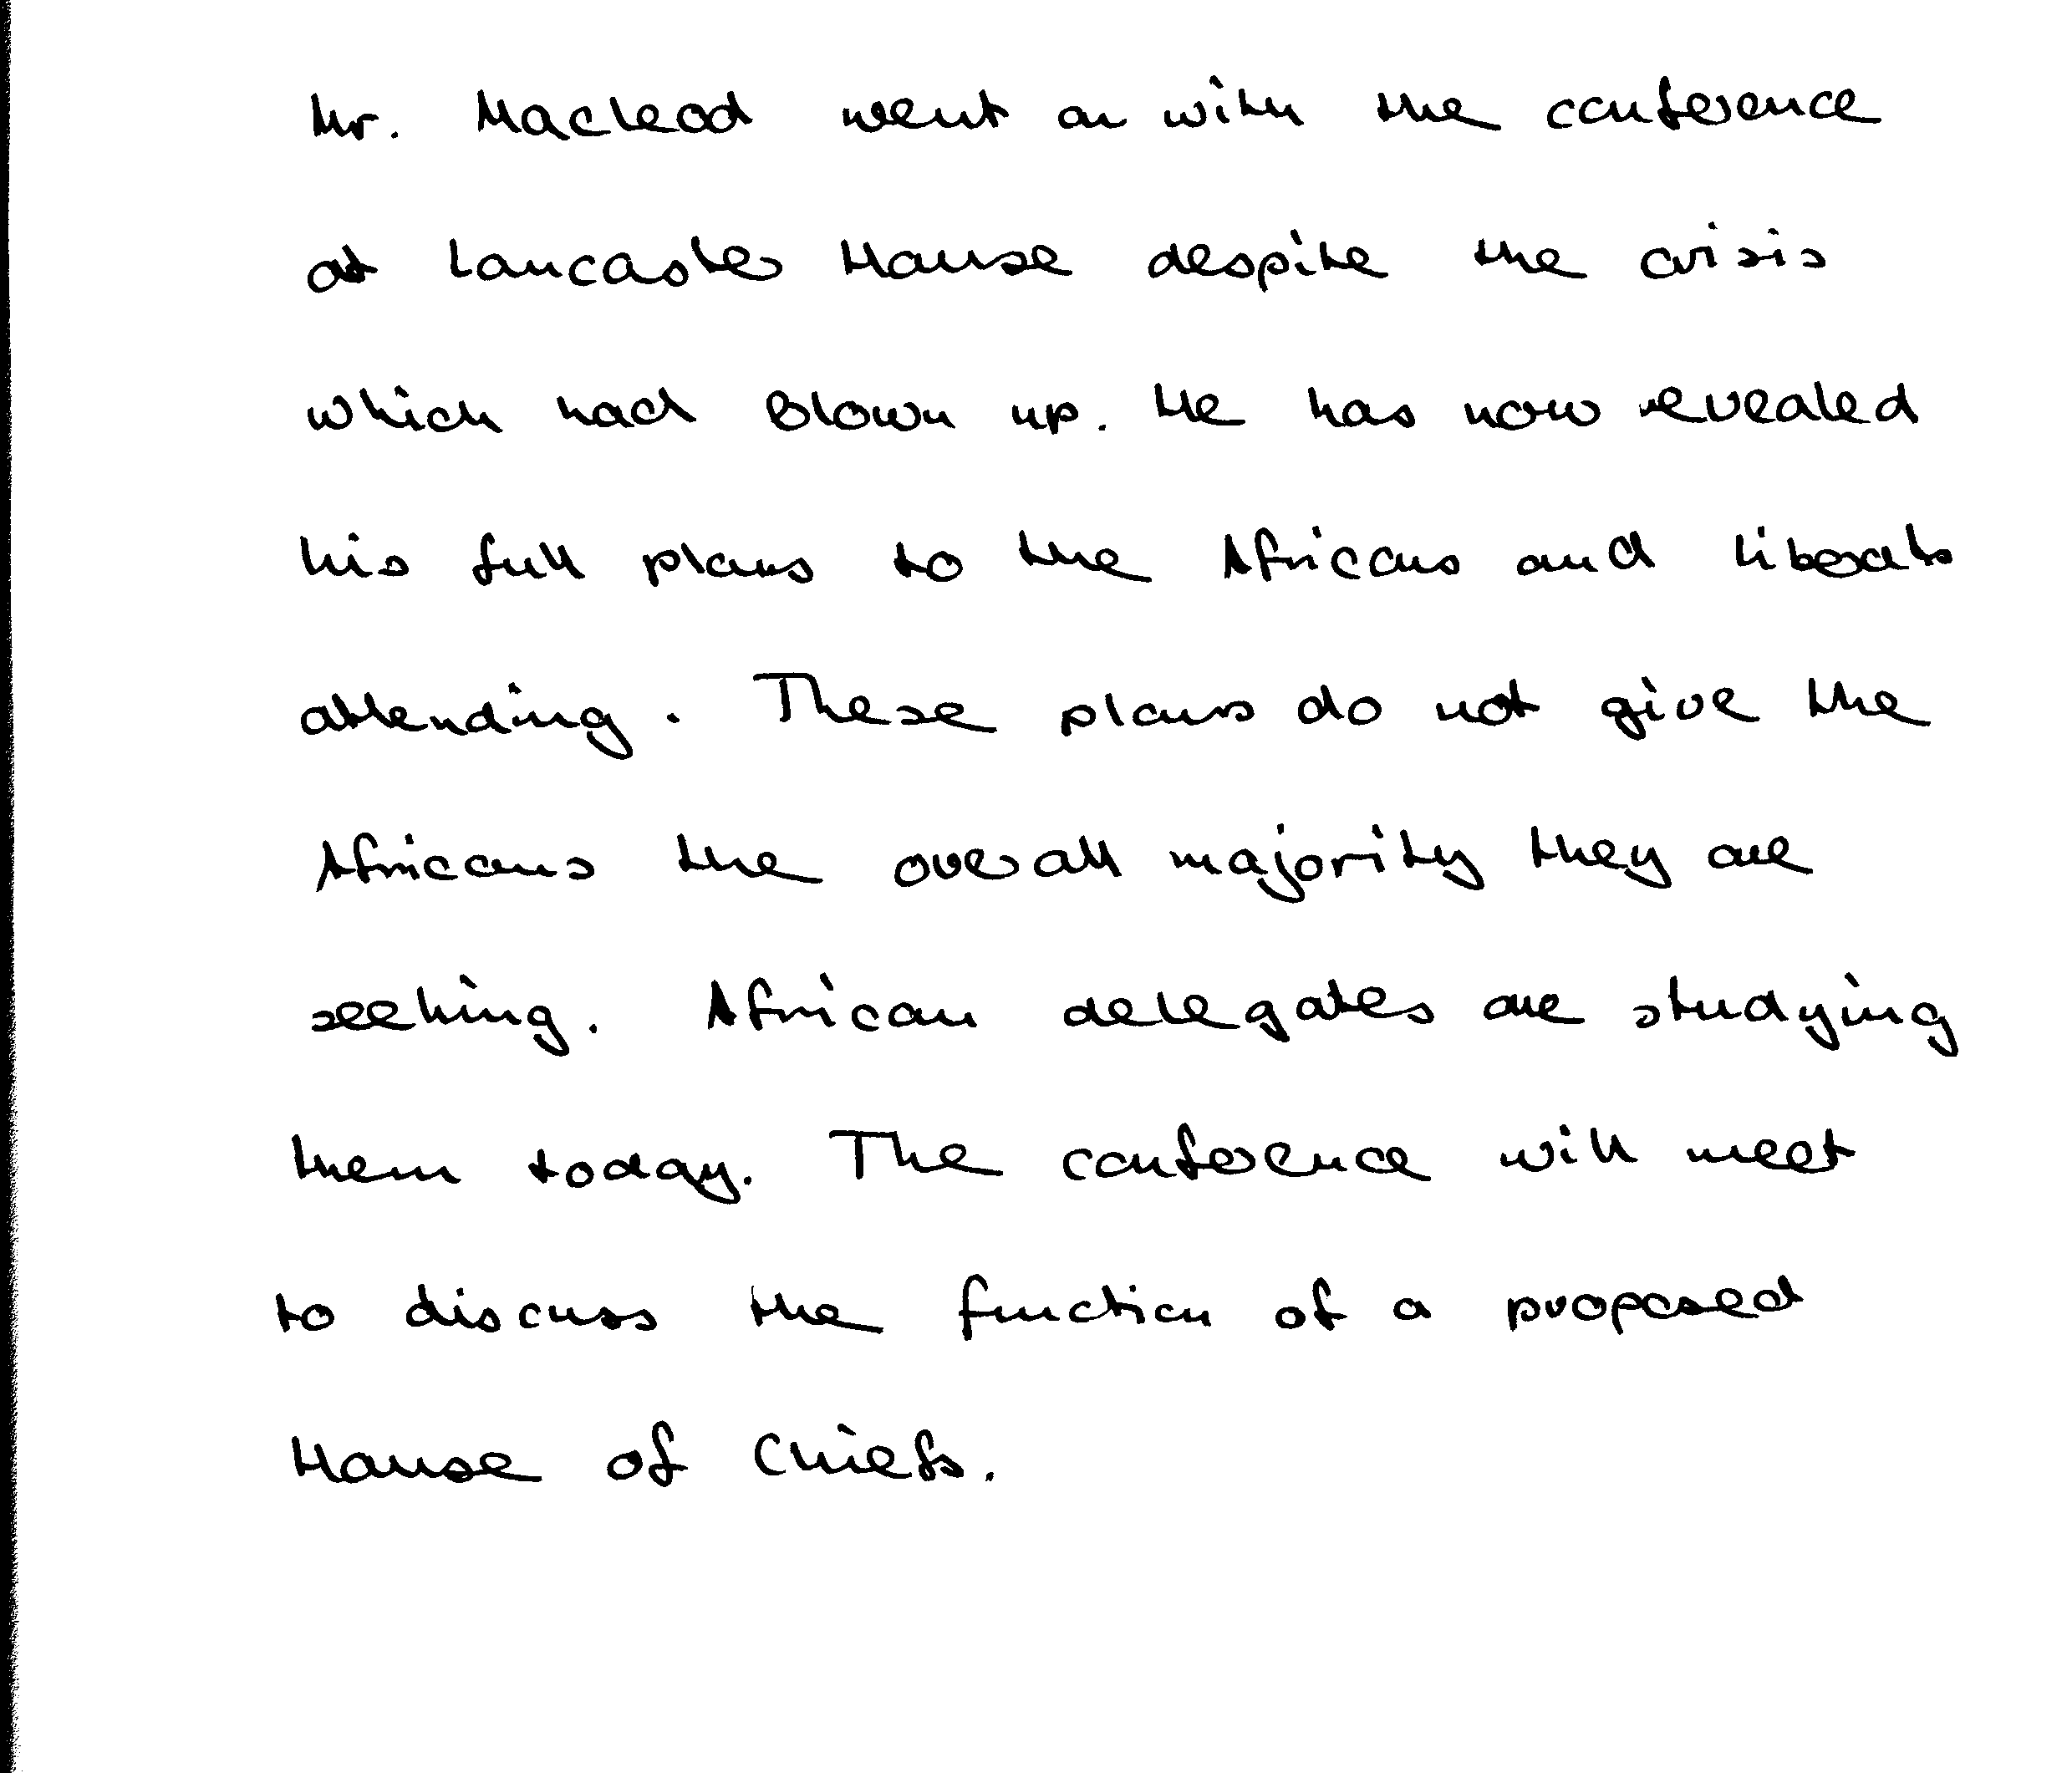 Mr. Macleod went on with the conference
at Lancaster House despite the crisis
which had blown up. He has now revealed
his full plans to the Africans and Liberals
attending. These plans do not give the
Africans the overall majority they are
seeking. African delegates are studying
them today. The conference will meet
to discuss the function of a proposed
House of Chiefs.